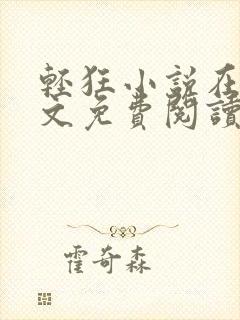 輕狂小說在
文免費閱讀
霍奇森